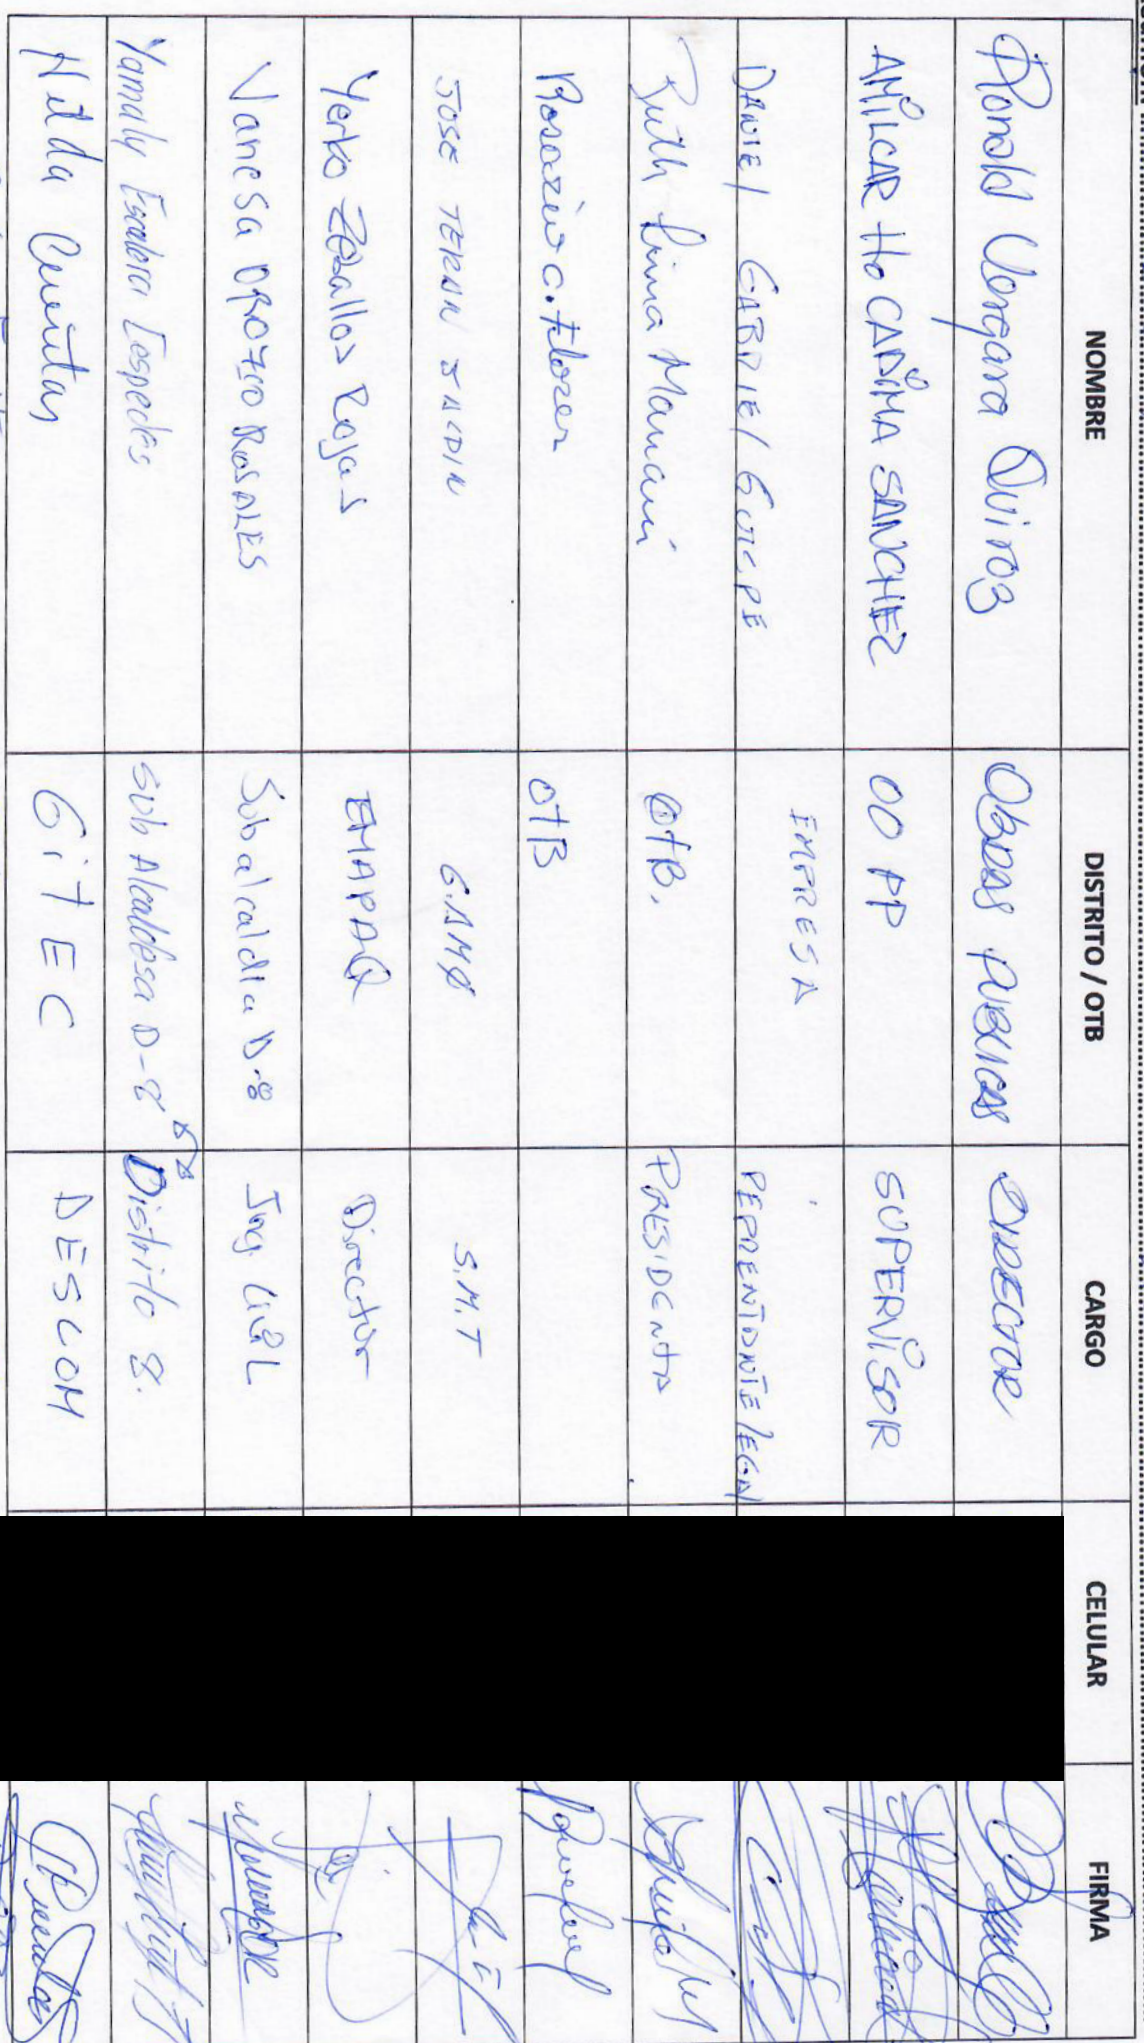 NOMBRE DISTRITO / OTB CARGO CELULAR FIRMA
Ronald Vergara Quiroz OBRAS PUBLICAS DIRECTOR
AMILCAR Ho CADIMA SANCHEZ OO PP SUPERVISOR
DANIEl GABRIEl EMPRESA REPRENTANTE lEGAl
Ruth Lima Mamani OTB. PRESIDENTA
Rosario C. OTB
JOSE TERAN G.AM S.M.T
Yerko Zeballos Rojas EMAPAQ Director
Vanesa OROZCO ROSALES Subalcaldia D-8 Ing. CiviL
Yamaly Escalera Cespedes Sub Alcaldesa D-8 Distrito 8.
Hilda Cuentas GiTEC DESCOM